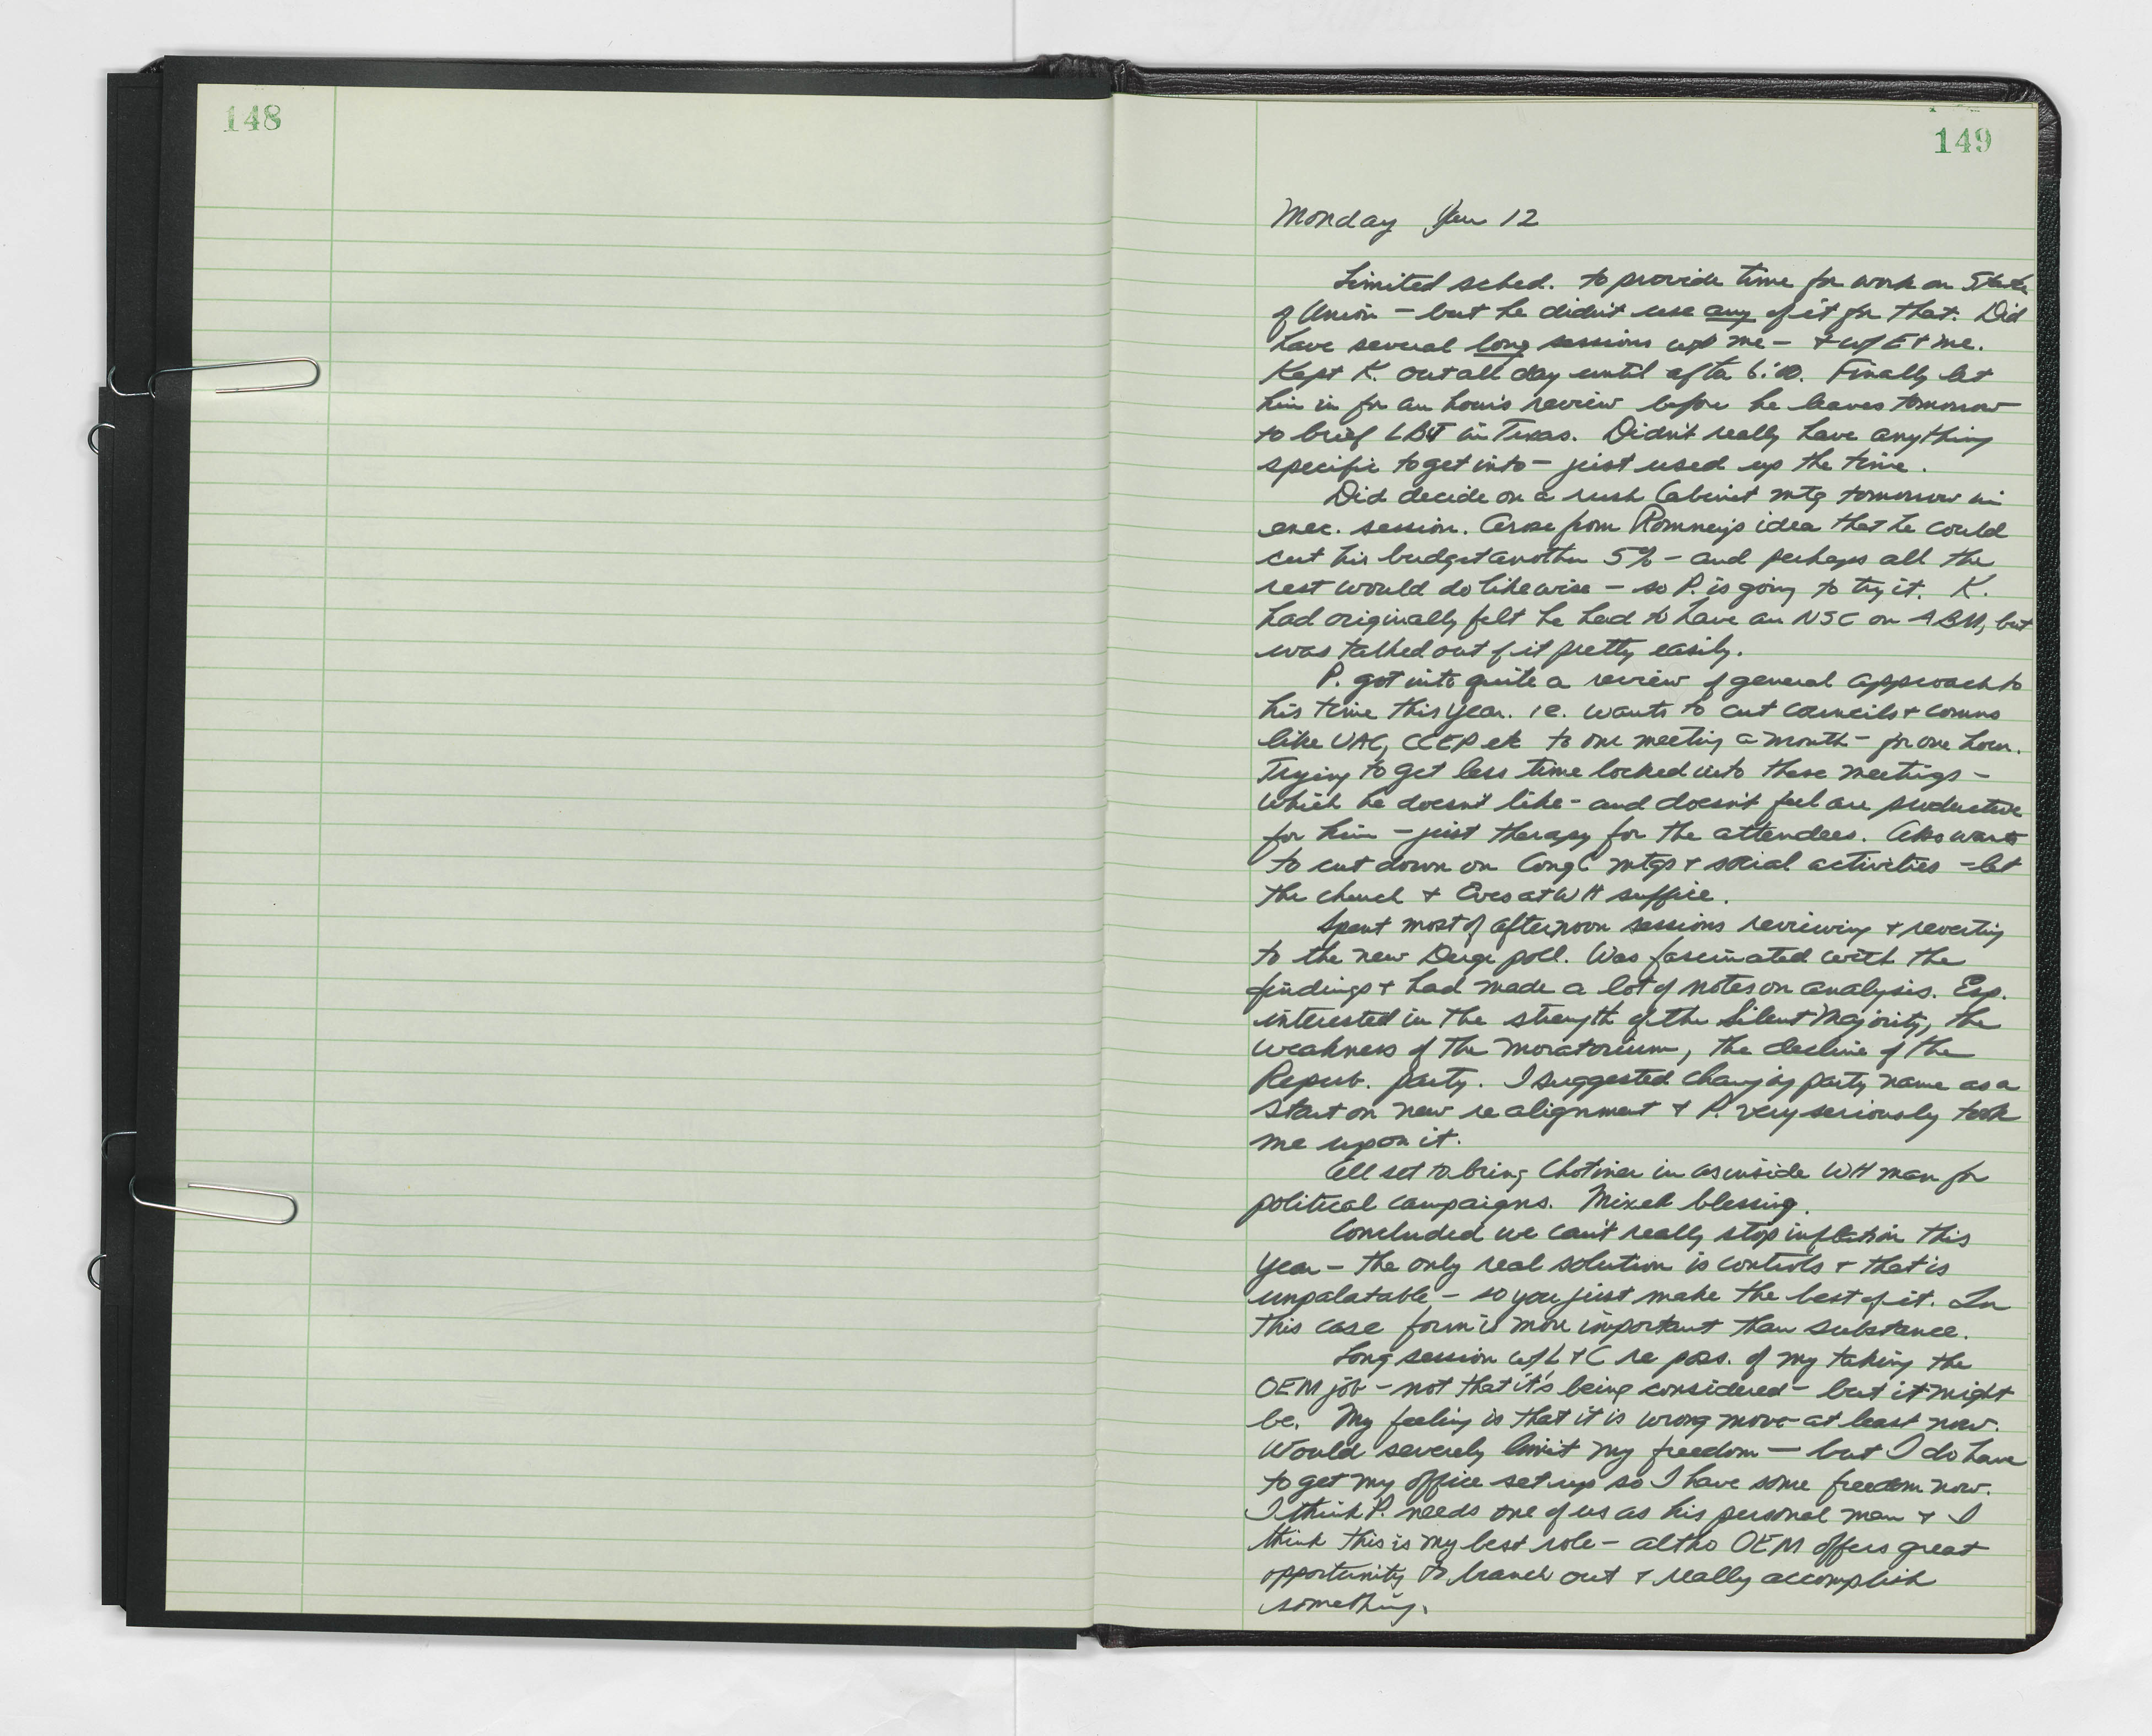 148
149
Monday Jan 12
Limited sched. to provide time for work on State
of Union - but he didn't use any of it for that. Did
have several long sessions w/ me - + w/ E + me.
Kept K. out all day until after 6:00. Finally let
him in for an hour's review before he leaves tomorrow
to brief LBJ in Texas. Didn't really have anything
specific to get into - just used up the time.
Did decide on a rush Cabinet mtg tomorrow in
exec. session. Arose from Romney's idea that he could
cut his budget another 5% - and perhaps all the
rest would do likewise - so P. is going to try it. K.
had originally felt he had to have an NSC on ABM, but
was talked out of it pretty easily.
P. got into quite a review of general approach to
his time this year. ie. wants to cut councils + comms
like UAC, CCEP etc to one meeting a month - for one hour.
Trying to get less time locked into these meetings -
which he doesn't like - and doesn't feel are productive
for him - just therapy for the attendees. Also wants
to cut down on Cong'l mtgs + social activities - let
the church + Eves at WH suffice.
Spent most of afternoon sessions reviewing + reverting
to the new Derge poll. Was fascinated with the
findings + had made a lot of notes on analysis. Esp.
interested in the strength of the Silent Majority, the
weakness of the moratorium, the decline of the
Repub. party. I suggested changing party name as a
start on new realignment + P. very seriously took
me up on it.
All set to bring Chotiner in as inside WH man for
political campaigns. Mixed blessing.
Concluded we can't really stop inflation this
year - the only real solution is controls + that is
unpalatable - so you just make the best of it. In
this case form is more important than substance.
Long session w/ L + C re poss. of my taking the
OEM job - not that it's being considered - but it might
be. My feeling is that it is wrong move at least now.
Would severely limit my freedom - but I do have
to get my office set up so I have some freedom now.
I think P. needs one of us as his personal man + I
think this is my best role - altho OEM offers great
opportunity to branch out + really accomplish
something.